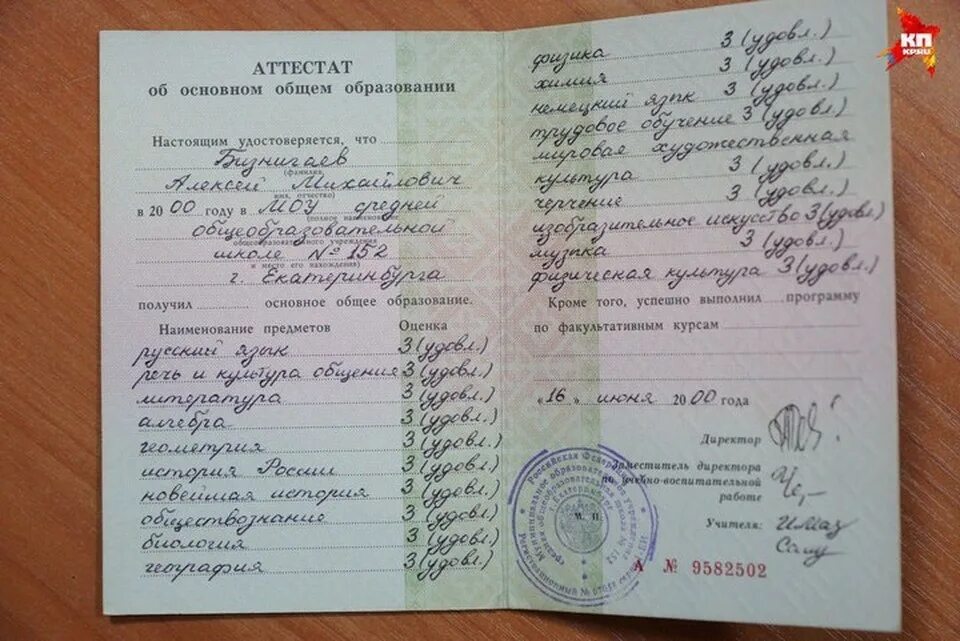 АТТЕСТАТ
об основном общем образовании
Настоящим удостоверяется, что
Бизнигаев
(фамилия,
Алексей Михайлович
имя, отчество)
в 2000 году в МОУ средней
(полное наименование
общеобразовательной
общеобразовательного учреждения
школе № 152
и место его нахождения)
г. Екатеринбурга
получил основное общее образование.
Наименование предметов Оценка
русский язык 3 (удовл.)
речь и культура общения 3 (удовл.)
литература 3 (удовл.)
алгебра 3 (удовл.)
геометрия 3 (удовл.)
история России 3 (удовл.)
новейшая история 3 (удовл.)
обществознание 3 (удовл.)
биология 3 (удовл.)
география 3 (удовл.)
физика 3 (удовл.)
химия 3 (удовл.)
немецкий язык 3 (удовл.)
трудовое обучение 3 (удовл.)
мировая художественная
культура 3 (удовл.)
черчение 3 (удовл.)
изобразительное искусство 3 (удовл.)
музыка 3 (удовл.)
физическая культура 3 (удовл.)
Кроме того, успешно выполнил программу
по факультативным курсам
"16" июня 2000 года
Директор
Заместитель директора
по учебно-воспитательной
работе
Учителя:
М. П.
Российская Федерация
А № 9582502
КП
KP.RU